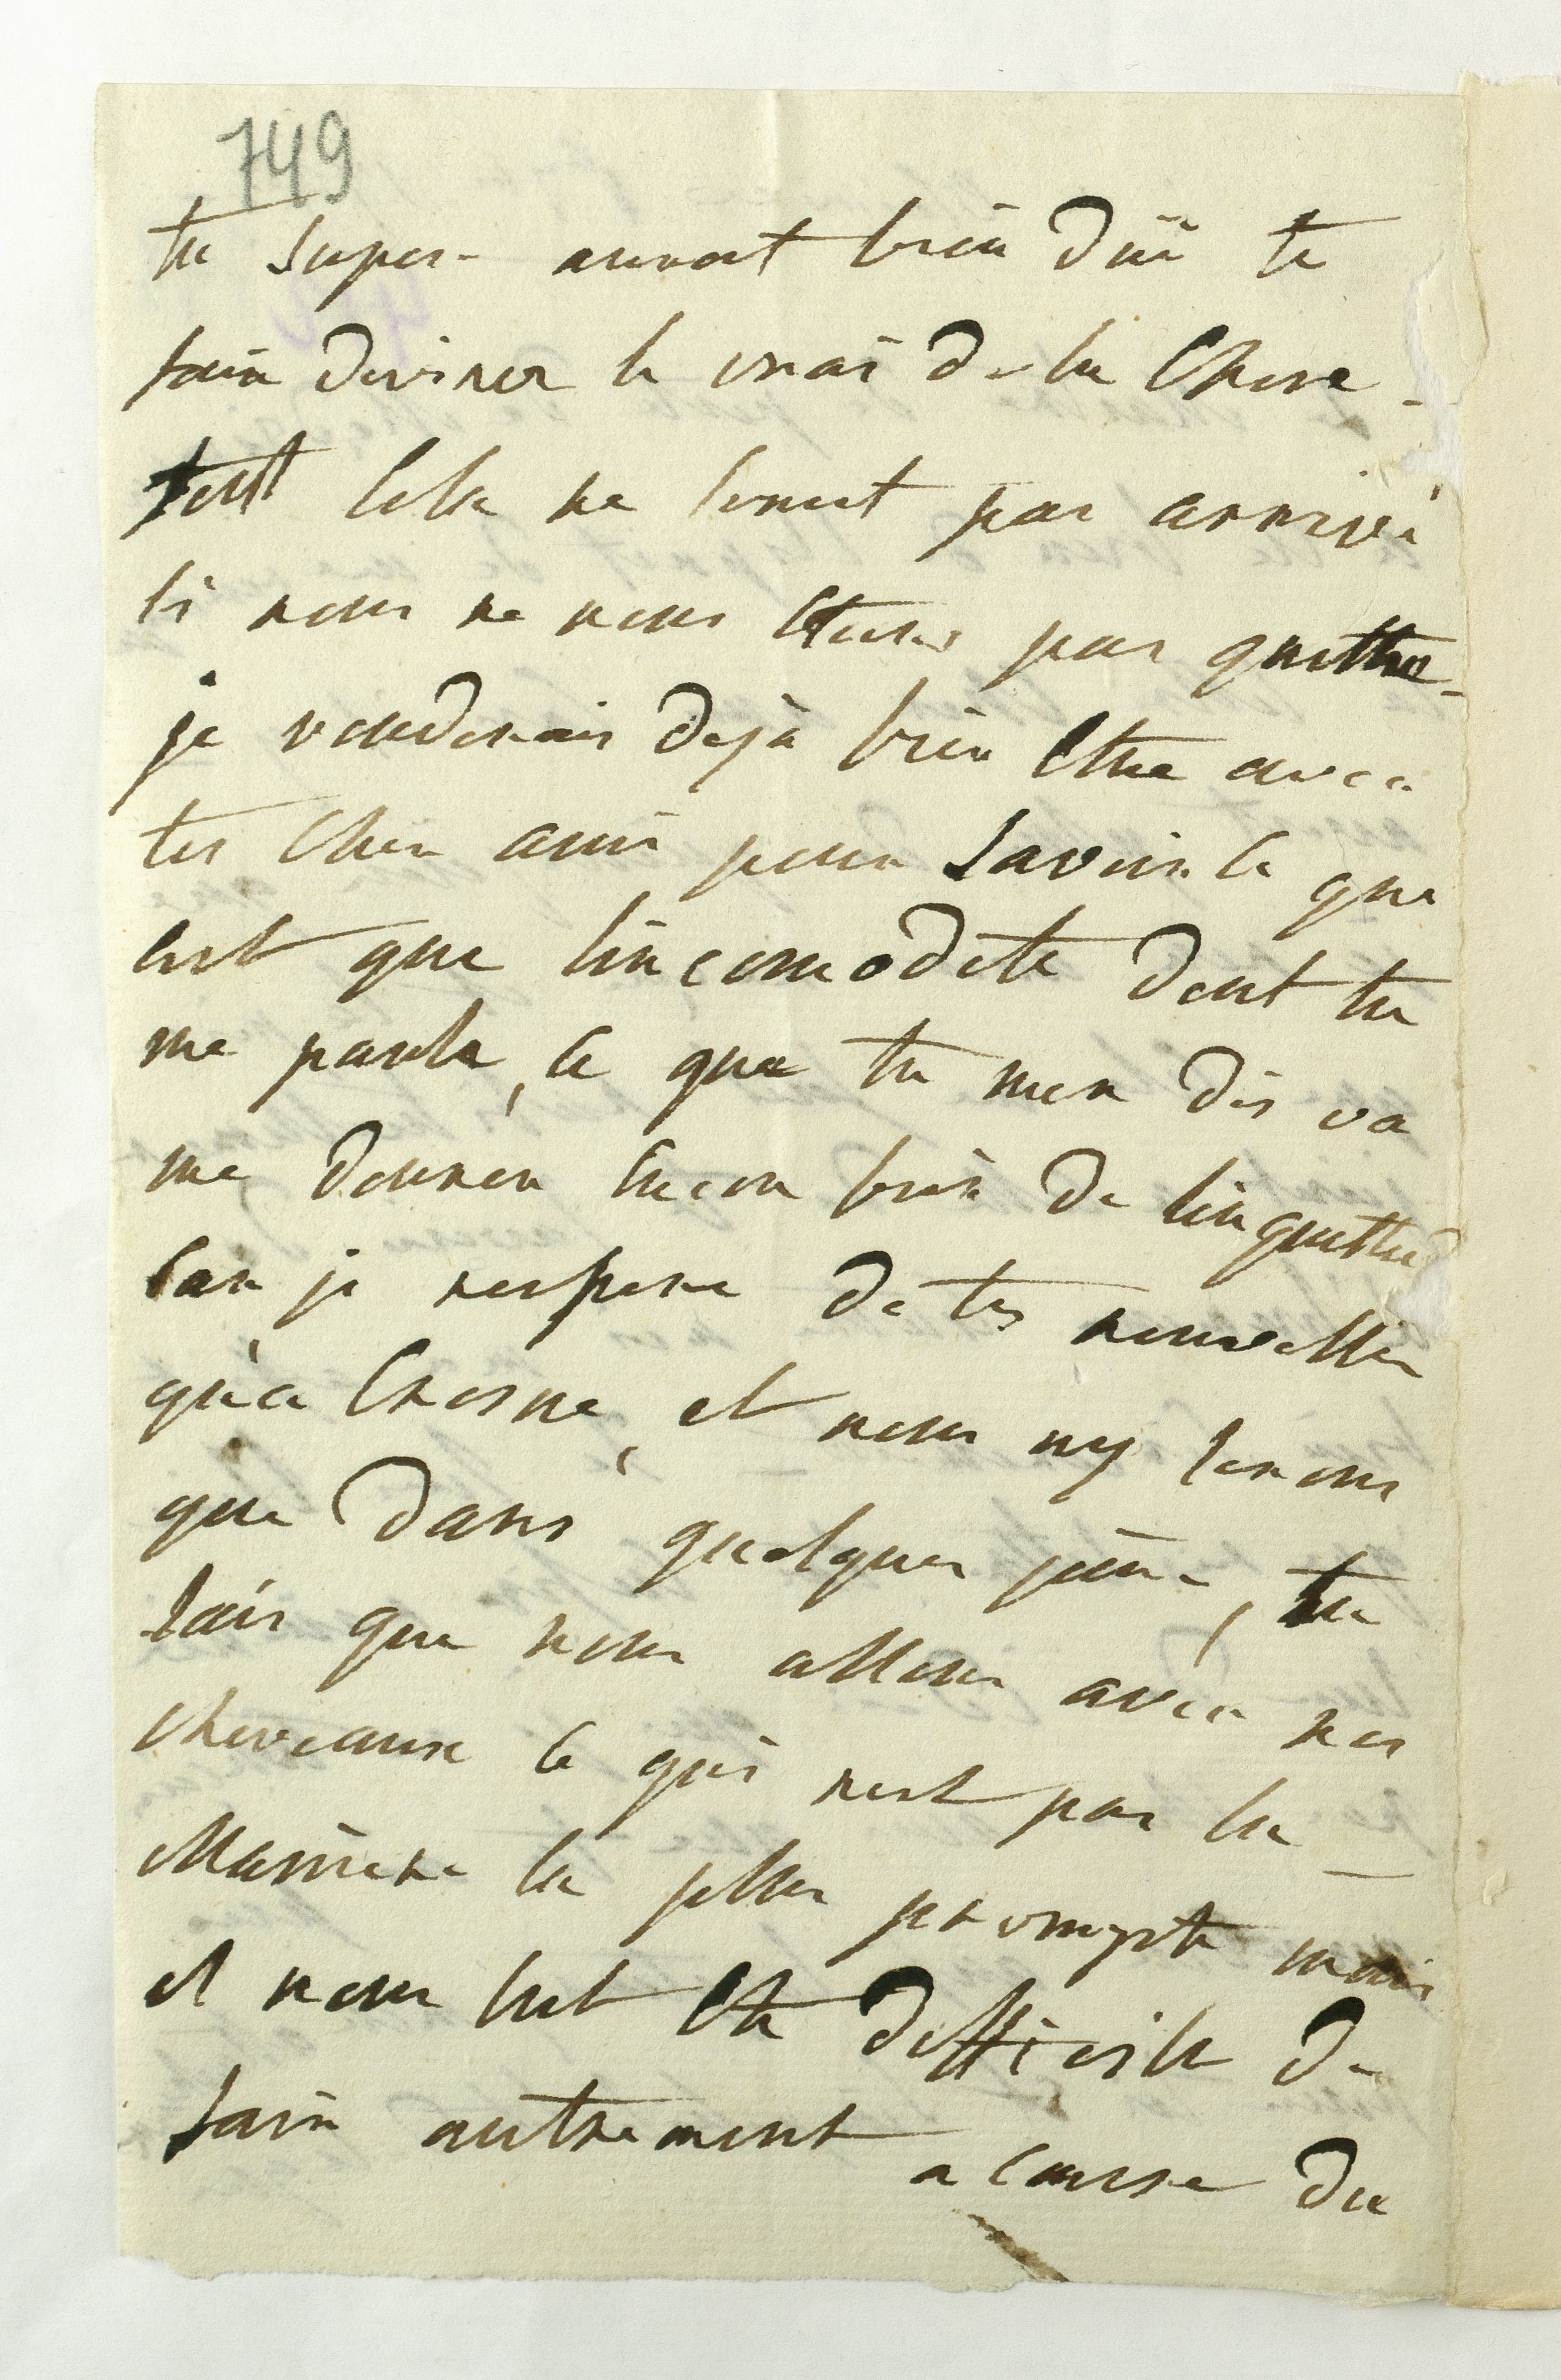 749
tu super auroit bien dûe te
faire deviner le vrai de la chose -
tout cela ne seroit pas arrivée
si nous ne nous etions pas quitter -
je vouderais dejà bien etre avec
toi cher ami pour savoir ce que
cest que lincomodité dont tu
me parle, ce que tu men dis va
me donner encore bien de linquettud
car je nespere de tes nouvelles
qu'a Crosne, et nous ny serons
que dans quelques jour, tu
sais que nous allons avec nos
cheveaux ce qui nest pas la
Maniere la plus prompte mais
il nous eut été difficile de
faire autrement a cause du